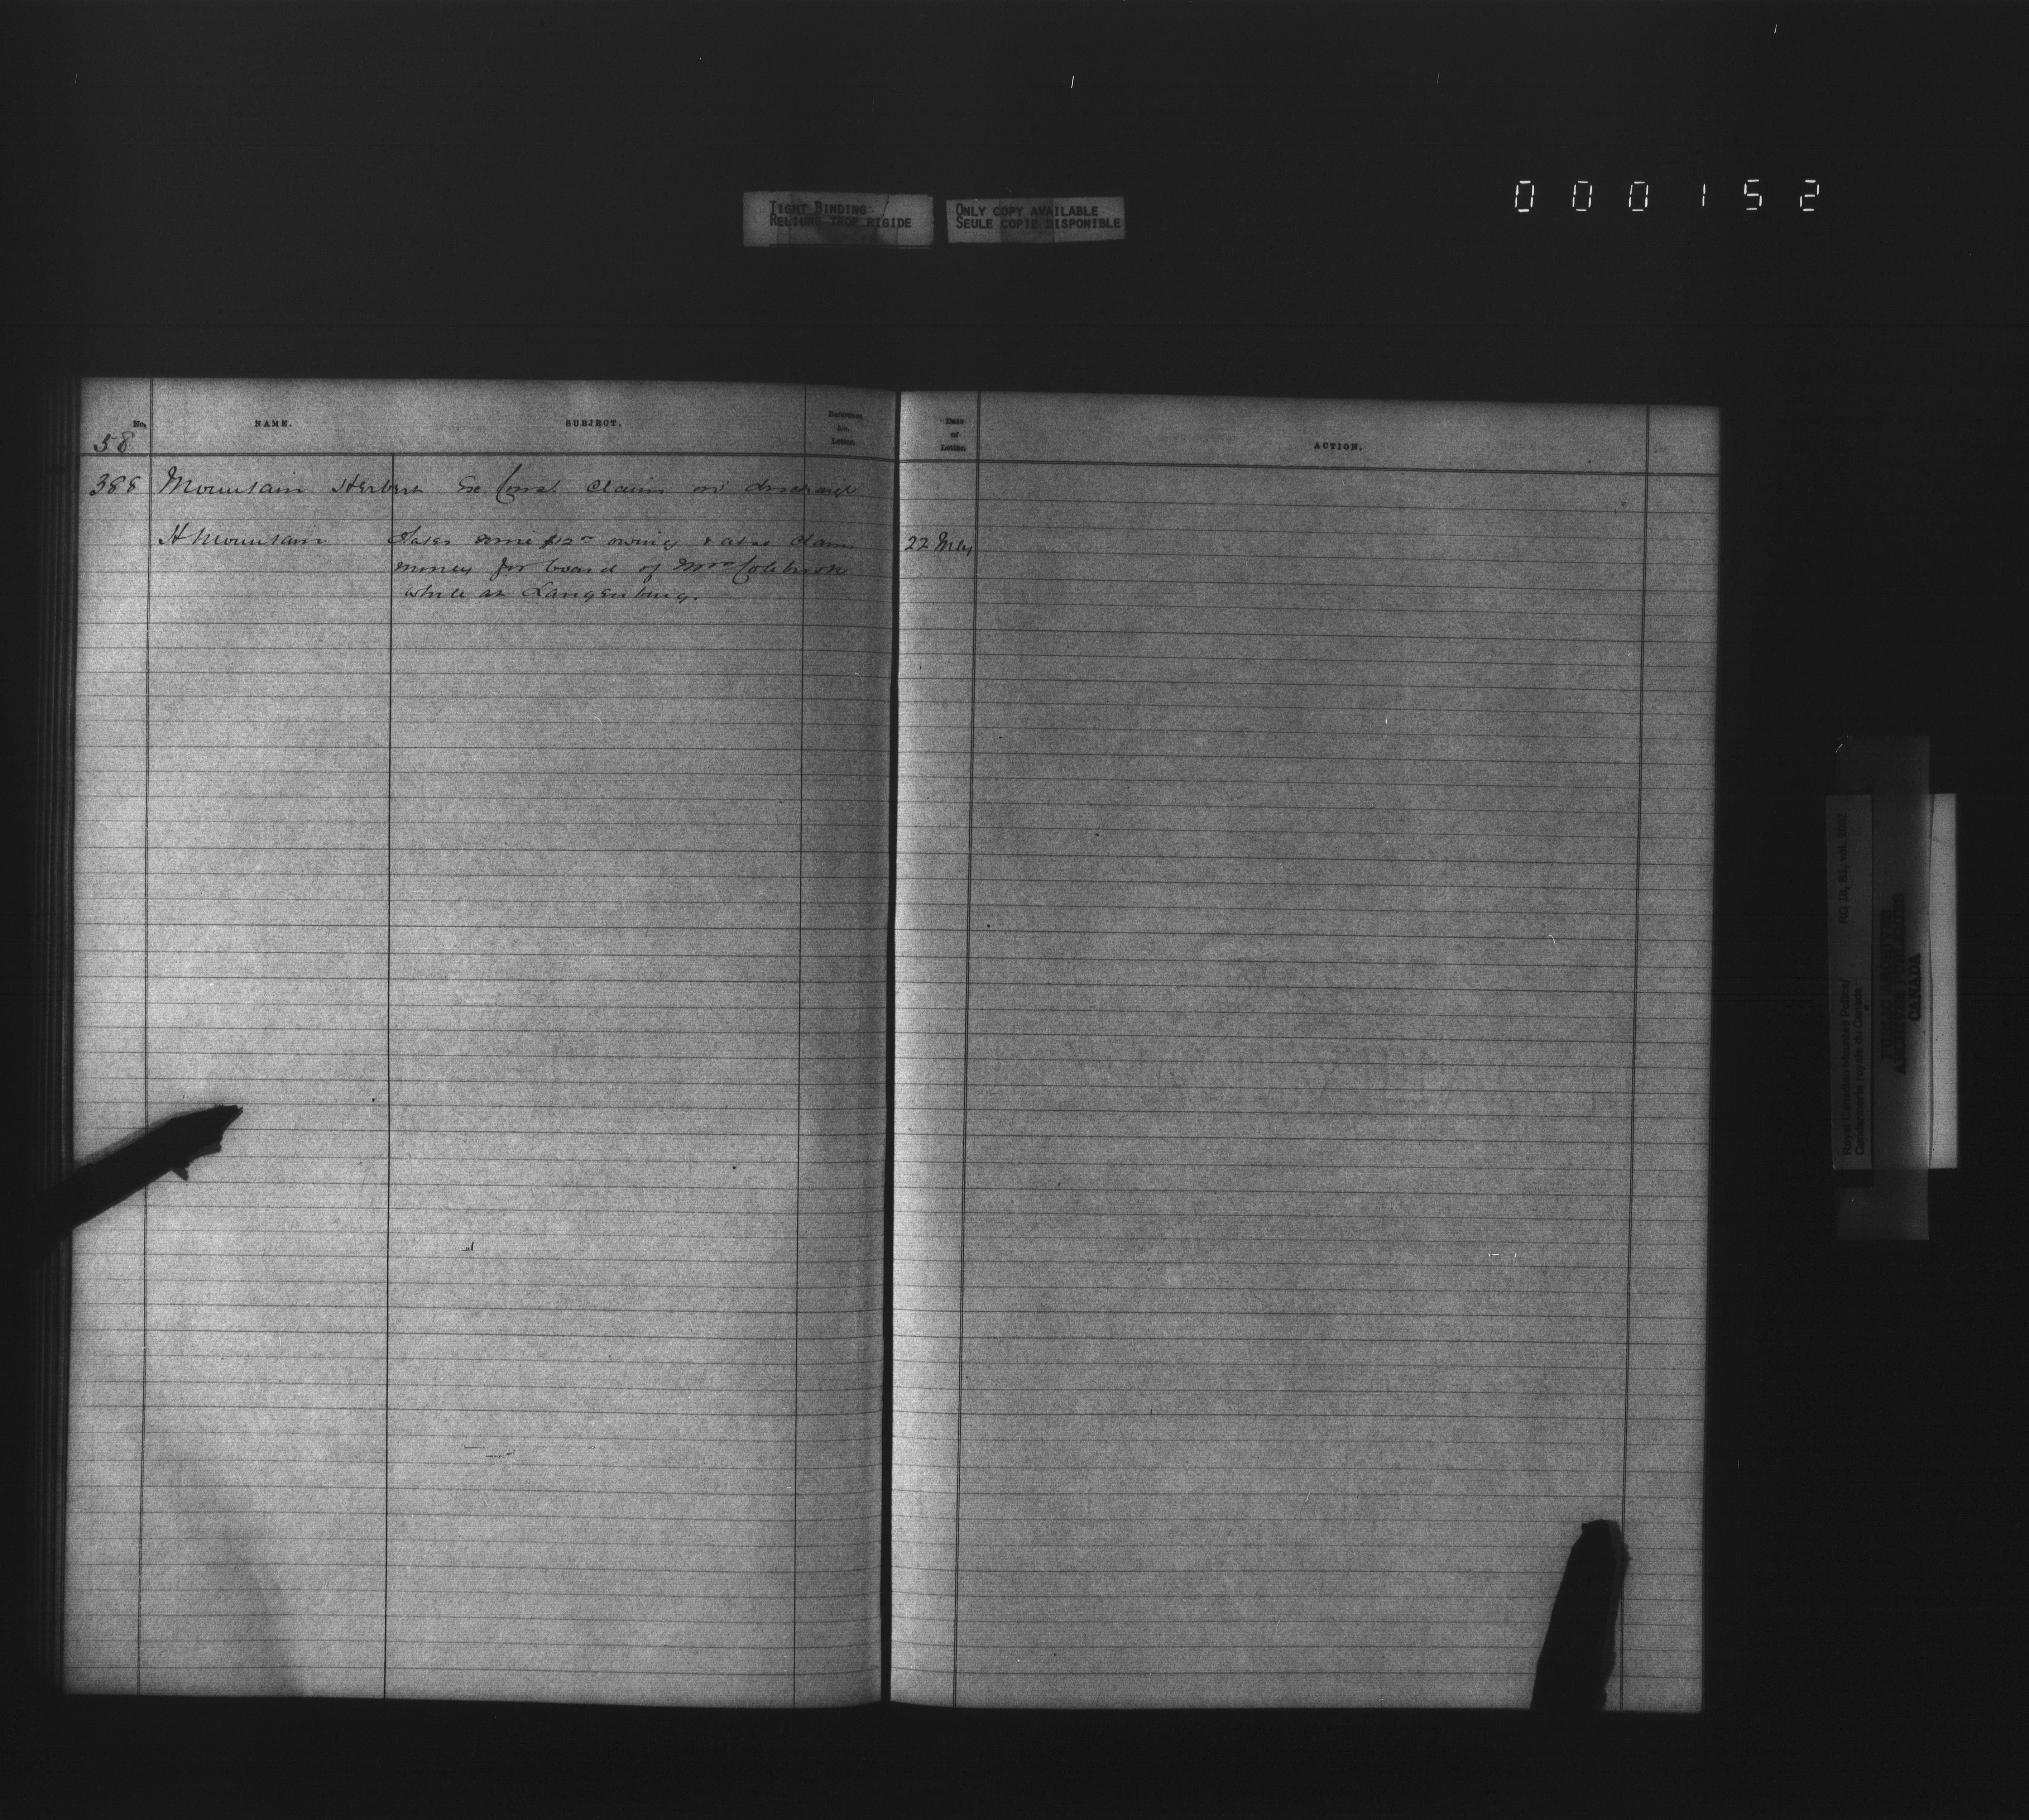 000152
TIGHT BINDING
RELIURE TROP RIGIDE
ONLY COPY AVAILABLE
SEULE COPIE DISPONIBLE
No.
NAME.
SUBJECT.
Reference
No.
Letter.
Date
of
Letter.
ACTION.
58
388 Mountain Herbert Ex Const. Claim on discharge
H Mountain States some $12 owing & also claims 22 May
money for board of Mrs Colebrook
while at Langenburg.
Royal Canadian Mounted Police/ RG 18, B1, vol. 2002
Gendarmerie royale du Canada
PUBLIC ARCHIVES
ARCHIVES PUBLIQUES
CANADA